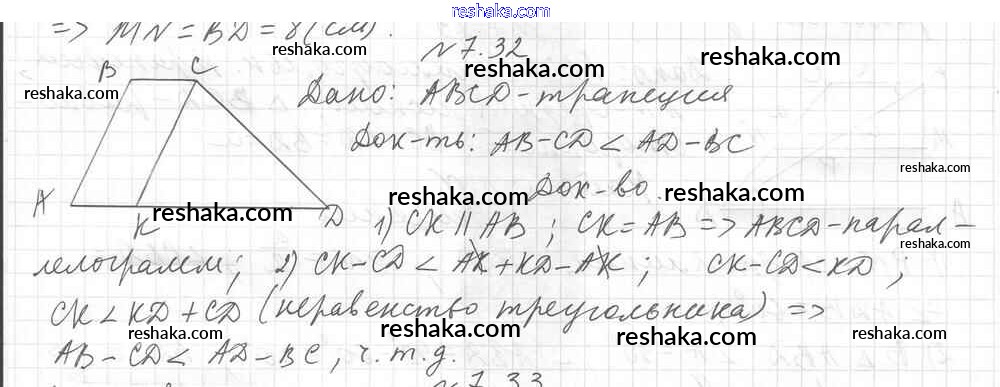 reshaka.com
=> MN = BD = 8 (см).
reshaka.com
№ 7.32
reshaka.com reshaka.com
B C
reshaka.com
Дано: ABCD - трапеция
Док-ть: AB - CD < AD - BC
reshaka.com
reshaka.com
Док-во.
reshaka.com reshaka.com
A K D
reshaka.com
1) CK || AB ; CK = AB => ABCD - парал-
reshaka.com
лелограмм; 2) CK - CD < AK + KD - AK ; CK - CD < KD ;
reshaka.com reshaka.com
CK < KD + CD (неравенство треугольника) =>
reshaka.com reshaka.com reshaka.com reshaka.com
AB - CD < AD - BC, ч.т.д.
№ 7.33